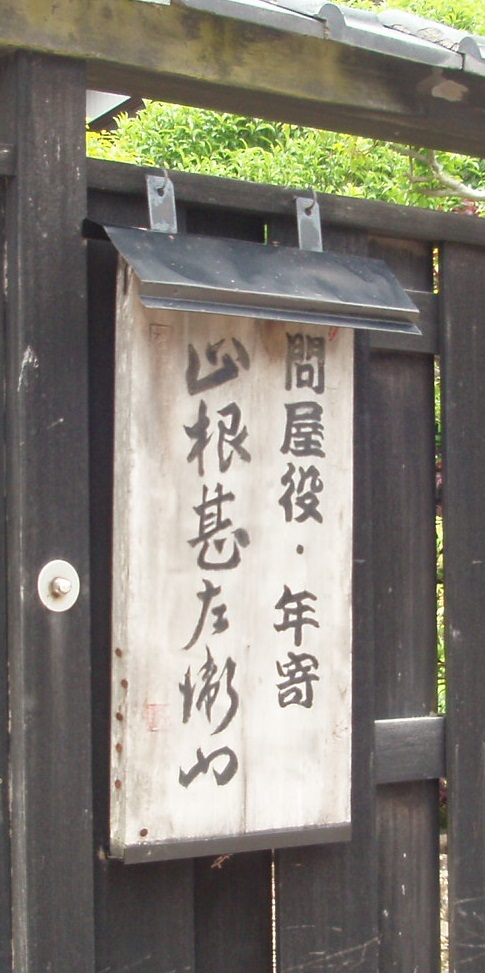 問屋役・年寄
山根甚左衛門